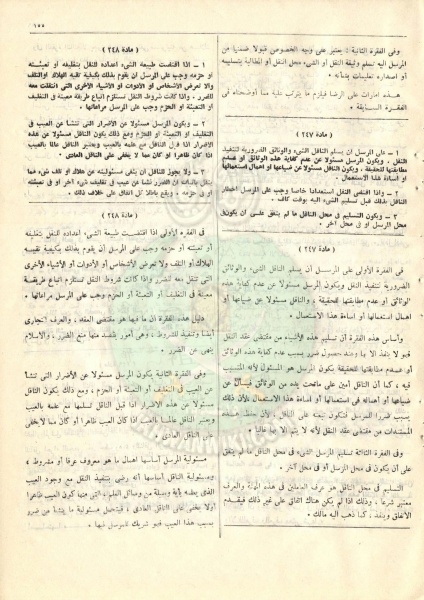 ١٥٥
وفى الفقرة الثانية : يعتبر على وجه الخصوص قبولا ضمنيا من
المرسل اليه تسلم وثيقة النقل أو الشىء محل النقل أو المطالبة بتسليمه
أو اصداره تعليمات بشأنه .
هذه امارات على الرضا فيلزم ما يترتب عليه مما أوضحناه فى
الفقرة السابقة .
( مادة ٢٤٧ )
١ – على المرسل ان يسلم الناقل الشىء والوثائق الضرورية لتنفيذ
النقل . ويكون المرسل مسئولا عن عدم كفاية هذه الوثائق او عدم
مطابقتها للحقيقة ، ويكون الناقل مسئولا عن ضياعها او اهمال استعمالها
او اساءة هذا الاستعمال .
٢ – واذا اقتضى النقل استعدادا خاصا وجب على المرسل اخطار
الناقل بذلك قبل تسليم الشىء اليه بوقت كاف .
٣ – ويكون التسليم فى محل الناقل ما لم يتفق على ان يكون فى
محل المرسل او فى محل آخر .
( مادة ٢٤٧ )
فى الفقرة الأولى على المرسل أن يسلم الناقل الشىء والوثائق
الضرورية لتنفيذ النقل ويكون المرسل مسئولا عن عدم كفاية هذه
الوثائق أو عدم مطابقتها للحقيقة ، والناقل مسئولا عن ضياعها أو
اهمال استعمالها أو اساءة هذا الاستعمال .
وأساس هذه الفقرة أن تسليم هذه الأشياء من مقتضى عقد النقل
فيه ، كما أن الناقل أمين على ماتحت يده من الوثائق فيسأل عن
ضياعها أو اهماله فى استعمالها أو اساءة هذا الاستعمال ، لأن ذلك
المستندات من مقتضى عقد النقل لأنه لا يتم الا بها غالبا .
وفى الفقرة الثالثة تسليم الشىء فى محل الناقل ما لم يتفق
على أن يكون فى محل المرسل أو فى محل آخر .
التسليم فى محل الناقل هو عرف العاملين فى هذه المهنة والعرف
معتبر شرعا ، وذلك اذا لم يكن هناك اتفاق على غير ذلك فيقدم
الاتفاق وينفذ ، كما ذهب اليه مالك .
( مادة ٢٤٨ )
١ – اذا اقتضت طبيعة الشىء اعداده للنقل بتغليفه او تعبئته
او حزمه وجب على المرسل ان يقوم بذلك بكيفية تقيه الهلاك او التلف
ولا تعرض الاشخاص او الادوات او الاشياء الأخرى التى انتقلت معه
للضرر . واذا كانت شروط النقل تستلزم اتباع طريقة معينة فى التغليف
او التعبئة او الحزم وجب على المرسل مراعاتها .
٢ – ويكون المرسل مسئولا عن الاضرار التى تنشأ عن العيب فى
التغليف او التعبئة او الحزم ومع ذلك يكون الناقل مسئولا عن هذه
الاضرار اذا قبل الناقل مع علمه بالعيب ويعتبر الناقل عالما بالعيب
اذا كان ظاهرا او كان مما لا يخفى على الناقل العادى .
٣ – ولا يجوز للناقل ان ينفى مسئوليته عن هلاك او تلف شىء مما
نقل باثبات ان الضرر نشأ عن عيب فى تغليف شىء آخر او فى تعبئته
او فى حزمه . ويقع باطلا كل اتفاق على خلاف ذلك .
( مادة ٢٤٨ )
فى الفقرة الأولى اذا اقتضت طبيعة الشىء اعداده للنقل بتغليفه
أو تعبئته أو حزمه وجب على المرسل أن يقوم بذلك بكيفية تقيه
الهلاك أو التلف ولا تعرض الأشخاص أو الأدوات أو الأشياء الأخرى
التى تنقل معه للضرر واذا كانت شروط النقل تستلزم اتباع طريقة
معينة فى التغليف أو التعبئة أو الحزم وجب على المرسل مراعاتها .
دليل هذه الفقرة أن ما فيها هو مقتضى العقد ، والعرف التجارى
أيضا وتنفيذ للشروط ، وهى أمور يقصد منها منع الضرر ، والاسلام
ينهى عن الضرر .
وفى الفقرة الثانية يكون المرسل مسئولا عن الأضرار التى تنشأ
عن العيب فى التغليف أو التعبئة أو الحزم ، ومع ذلك يكون الناقل
مسئولا عن هذه الأضرار اذا قبل الناقل تسلمها مع علمه بالعيب
ويعتبر الناقل عالما بالعيب اذا كان العيب ظاهرا أو كان مما لا يخفى
على الناقل العادى .
مسئولية المرسل أساسها اهمال ما هو معروف عرفا أو مشروط ،
ومسئولية الناقل أساسها أنه رضى بتنفيذ النقل مع وجود العيب
بسبب هذا العيب فهو شريك للمرسل فيها .